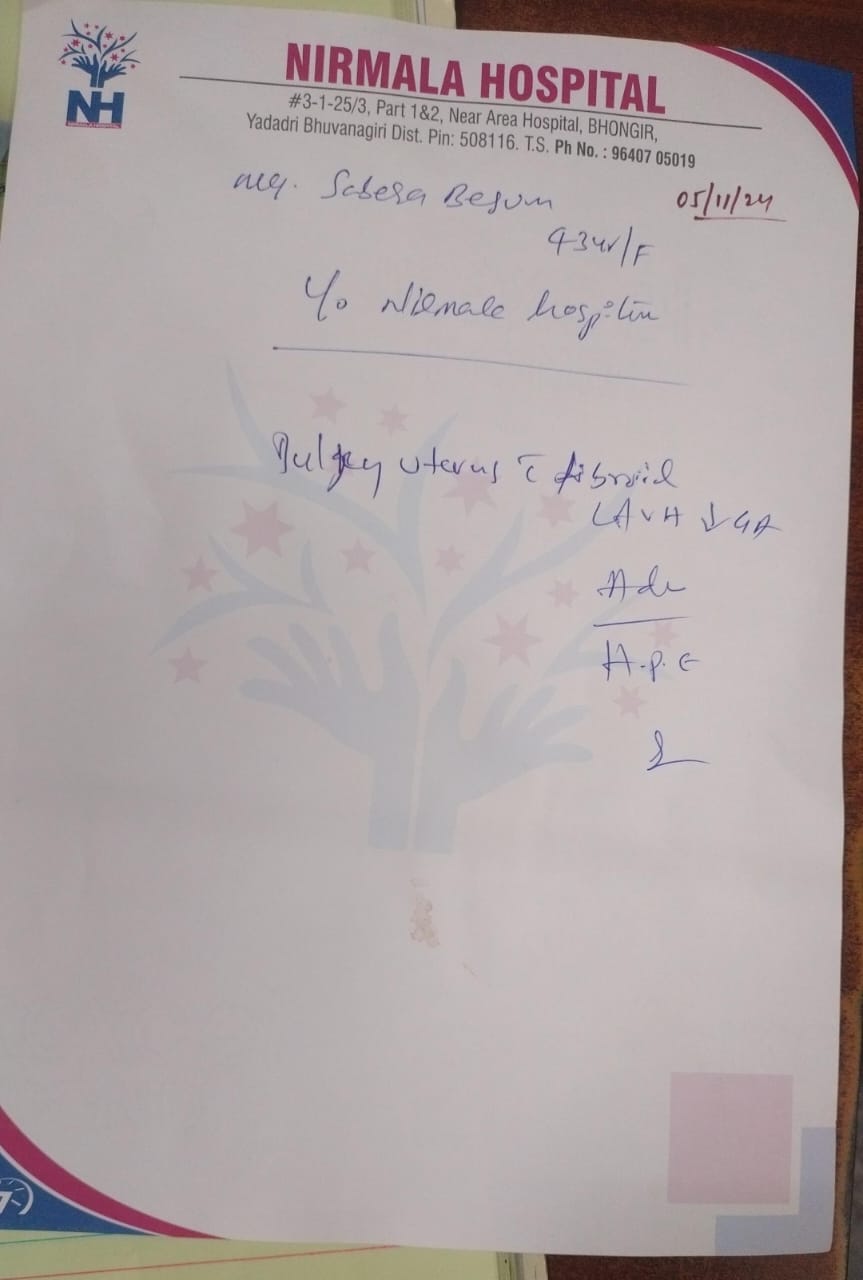 NH
NIRMALA HOSPITAL
NIRMALA HOSPITAL
#3-1-25/3, Part 1&2, Near Area Hospital, BHONGIR,
Yadadri Bhuvanagiri Dist. Pin: 508116. T.S. Ph No. : 96407 05019
Sabera Begum 05/11/24
43yr/F
hospital
Bulgey uterus c̄ fibroid
LAVH ↓ GA
Adv
H.P.E